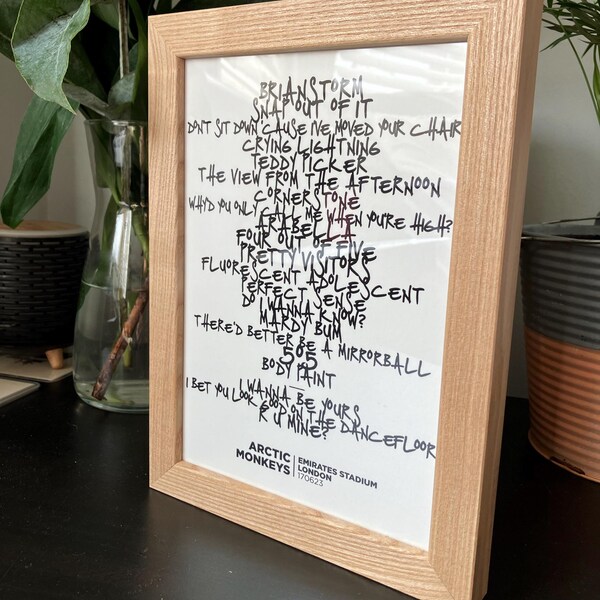 BRIANSTORM
SNAP OUT OF IT
DON'T SIT DOWN 'CAUSE I'VE MOVED YOUR CHAIR
CRYING LIGHTNING
TEDDY PICKER
THE VIEW FROM THE AFTERNOON
CORNERSTONE
WHY'D YOU ONLY CALL ME WHEN YOU'RE HIGH?
ARABELLA
FOUR OUT OF FIVE
PRETTY VISITORS
FLUORESCENT ADOLESCENT
PERFECT SENSE
DO I WANNA KNOW?
MARDY BUM
THERE'D BETTER BE A MIRRORBALL
505
BODY PAINT
—
I WANNA BE YOURS
I BET YOU LOOK GOOD ON THE DANCEFLOOR
R U MINE?
ARCTIC
MONKEYS
EMIRATES STADIUM
LONDON
170623